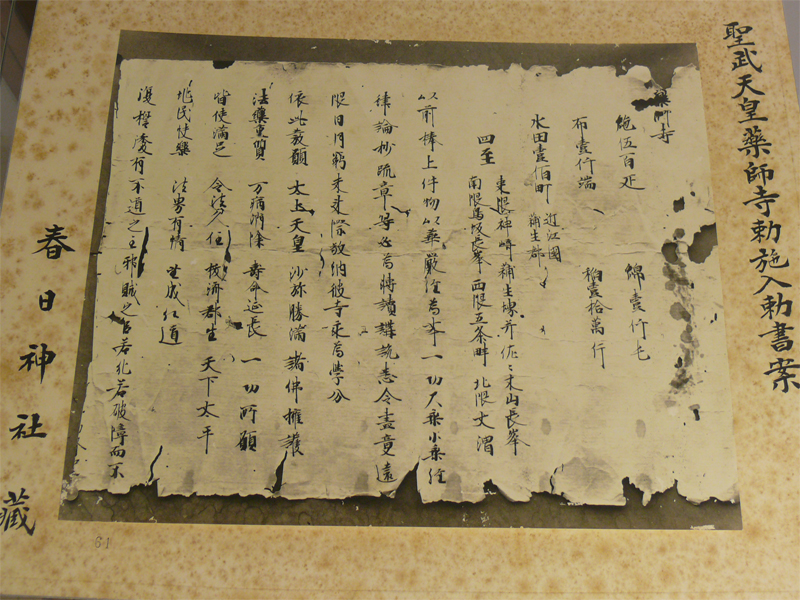 聖武天皇藥師寺勅施入勅書案
藥師寺
絁伍百疋 綿壹仟屯
布壹仟端 稲壹拾萬行
水田壹佰町 近江國蒲生郡
四至 東限神崎蒲生堺并佐々木山長峯
南限馬坂長峯 西限五条畔 北限丈渭
以前捧上件物以華嚴経為本一切大乗小乗経
律論抄疏章等必為轉讀講説悉令盡竟遠
限日月窮未来際敬納彼寺永為學分
依此發願 太上天皇 沙弥勝満 諸佛擁護
法藥熏質 万病消除 壽命延長 一切所願
皆使満足 令法久住 抜濟群生 天下太平
兆民快樂 法界有情 共成仏道
復誓後有不道之主邪賊之臣若犯若破障而不
春日神社藏
61